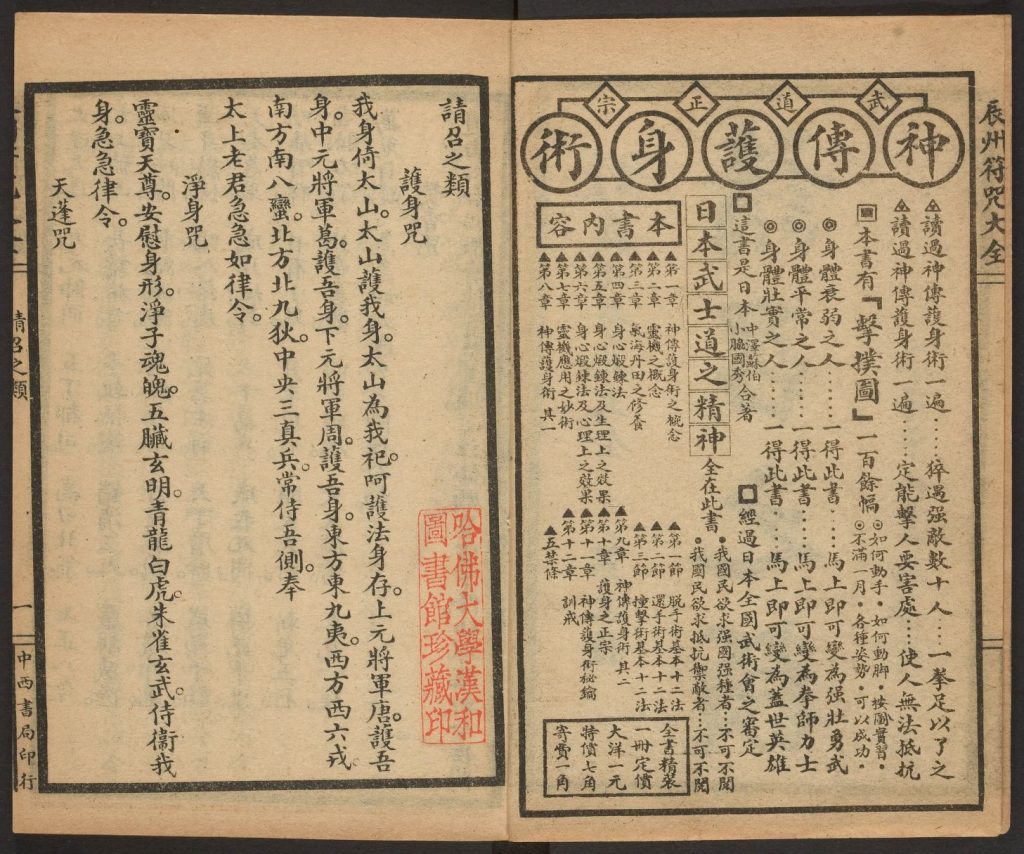 辰州符咒大全
武道正宗
神傳護身術
讀過神傳護身術一遍……猝遇强敵數十人……一拳足以了之
讀過神傳護身術一遍……定能擊人要害處……使人無法抵抗
本書有『擊撲圖』一百餘幅
◎如何動手・如何動脚・按圖實習・
◎不滿一月・各種姿勢・可以成功・
◎身體衰弱之人……一得此書……馬上即可變為强壯勇武
◎身體平常之人……一得此書……馬上即可變為拳師力士
◎身體壯實之人……一得此書……馬上即可變為蓋世英雄
這書是日本
中澤蘇伯
小熊國秀
合著
經過日本全國武術會之審定
日本武士道之精神
全在此書
・我國民欲求强國强種者……不可不閱
・我國民欲求抵抗禦敵者……不可不閱
本書內容
▲第一章 神傳護身術之概念
▲第二章 靈機之概念
▲第三章 氣海丹田之修養
▲第四章 身心煅鍊法
▲第五章 身心煅鍊法及生理上之效果
▲第六章 身心煅鍊法及心理上之效果
▲第七章 靈機應用之妙術
▲第八章 神傳護身術 其一
▲第一節 脫手術基本十二法
▲第二節 還手術基本十二法
▲第三節 撞擊術基本十二法
▲第九章 神傳護身術 其二
▲第十章 護身之正宗
▲第十一章 神傳護身術秘鑰
▲第十二章 訓戒
▲五禁條
全書精裝
一冊定價
大洋一元
特價七角
寄費一角
請召之類
護身咒
我身倚太山。太山護我身。太山為我祀。呵護法身存。上元將軍唐。護吾
身。中元將軍葛。護吾身。下元將軍周。護吾身。東方東九夷。西方西六戎
南方南八蠻。北方北九狄。中央三真兵。常侍吾側。奉
太上老君急急如律令。
淨身咒
靈寶天尊。安慰身形。淨子魂魄。五臟玄明。青龍白虎。朱雀玄武。侍衞我
身。急急律令。
天蓬咒
哈佛大學漢和
圖書館珍藏印
請召之類
一
中西書局印行